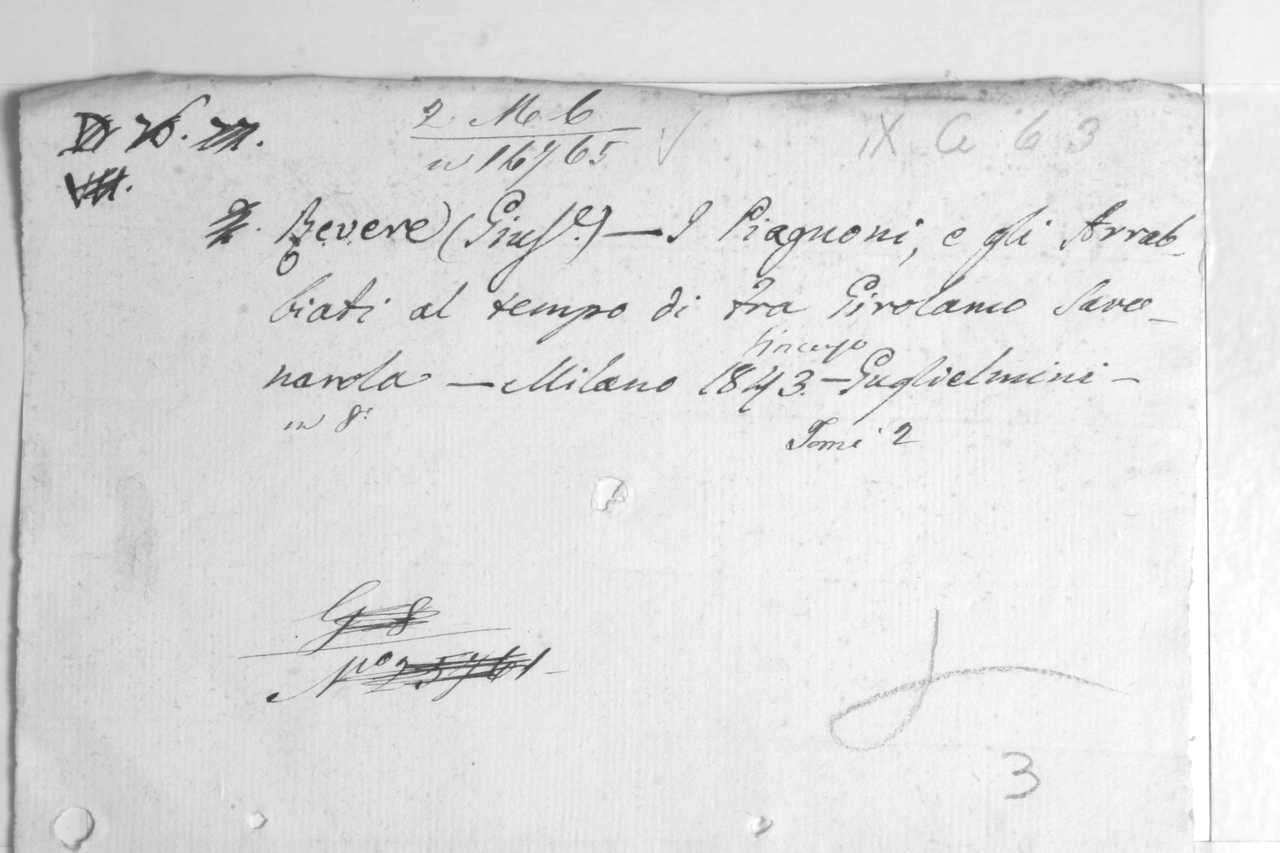 2. M. 6
n 16765
IX G 6 3
Revere (Giusᵉ.) — I Piagnoni, e gli Arrab-
biati al tempo di Fra Girolamo Savo-
narola — Milano 1843. — Guglielmini —
in 8°
Tomi 2
G 8
Nº 25761
3